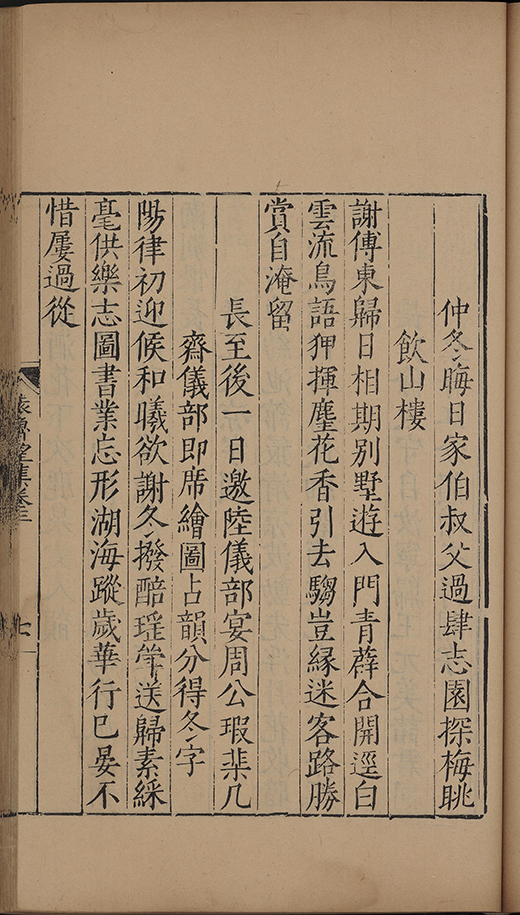 仲冬晦日家伯叔父過肆志園探梅眺
飲山樓
謝傅東歸日相期別墅遊入門青薜合開逕白
雲流鳥語狎揮麈花香引去騶豈緣迷客路勝
賞自淹留
長至後一日邀陸儀部宴周公瑕棐几
齋儀部即席繪圖占韻分得冬字
陽律初迎候和曦欲謝冬撥醅瑶斝送歸素綵
毫供樂志圖書業忘形湖海蹤歲華行已晏不
惜屢過從
袁魯望集卷三
七